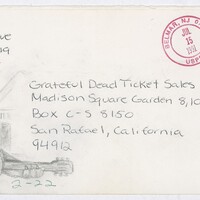 BELMAR, NJ
JUL
15
USPO
Grateful Dead Ticket Sales
Madison Square Garden 8,10
Box C-S 8150
San Rafael, California
94912
2-22